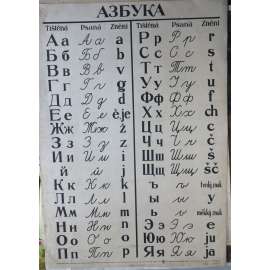 АЗБУКА
Tištěná Psaná Znění Tištěná Psaná Znění
Аа А а a Рр Р р r
Бб Б б b Сс С с s
Вв В в v Тт Т т t
Гг Г г g Уу У у u
Дд Д д d Фф Ф ф f
Ее Е е ě,je Хх Х х ch
Жж Ж ж ž Цц Ц ц c
Зз З з z Чч Ч ч č
Ии И и i Шш Ш ш š
й й j Щщ Щ щ šč
Кк К к k ъ ъ tvrdý znak
Лл Л л l ы ы y
Мм М м m ь ь měkký znak
Нн Н н n Ээ Э э e
Оо О о o Юю Ю ю ju
Пп П п p Яя Я я ja